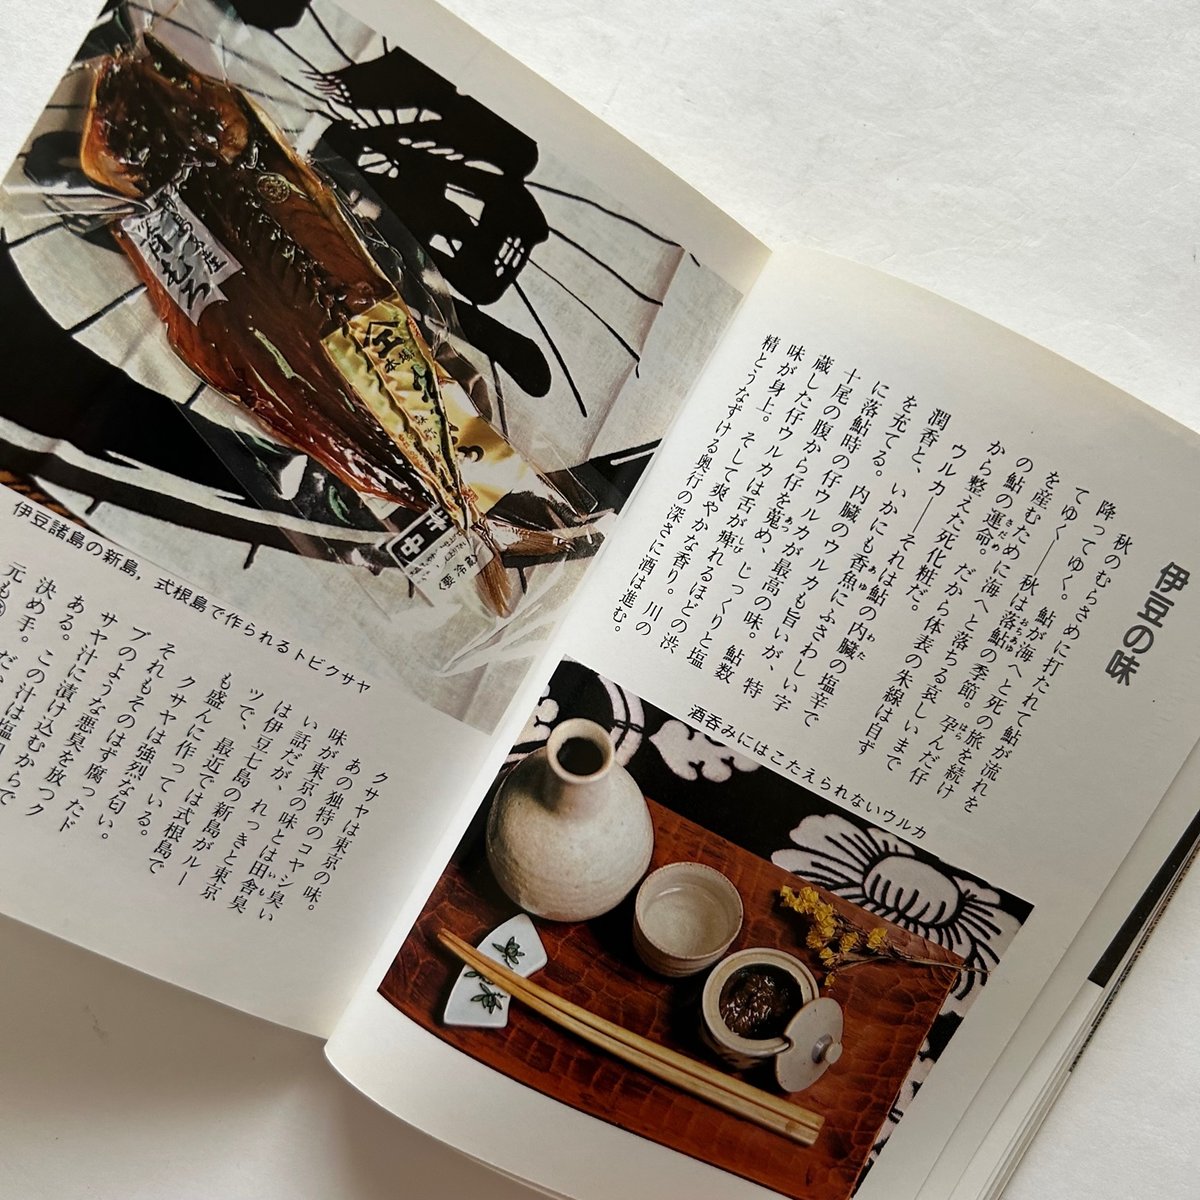 伊豆の味
秋のむらさめに打たれて鮎が流れを
降ってゆく。鮎が海へと死の旅を続け
てゆく――秋は落鮎の季節。孕んだ仔
を産むために海へと落ちる哀しいまで
の鮎の運命。だから体表の朱線は自ず
から整えた死化粧だ。
ウルカ――それは鮎の内臓の塩辛で
潤香と、いかにも香魚にふさわしい字
を充てる。内臓のウルカも旨いが、特
に落鮎時の仔ウルカが最高の味。鮎数
十尾の腹から仔を蒐め、じっくりと塩
蔵した仔ウルカは舌が痺れるほどの渋
味が身上。そして爽やかな香り。川の
精とうなずける奥行の深さに酒は進む。
酒呑みにはこたえられないウルカ
伊豆諸島の新島，式根島で作られるトビクサヤ
クサヤは東京の味。
あの独特のコヤシ臭い
味が東京の味とは田舎臭
い話だが、れっきと東京
は伊豆七島の新島がルー
ツで、最近では式根島で
も盛んに作っている。
クサヤは強烈な匂い。
それもそのはず腐ったド
ブのような悪臭を放つク
サヤ汁に漬け込むからで
ある。この汁は塩
決め手。だ
元も
島産
青むろ
本場